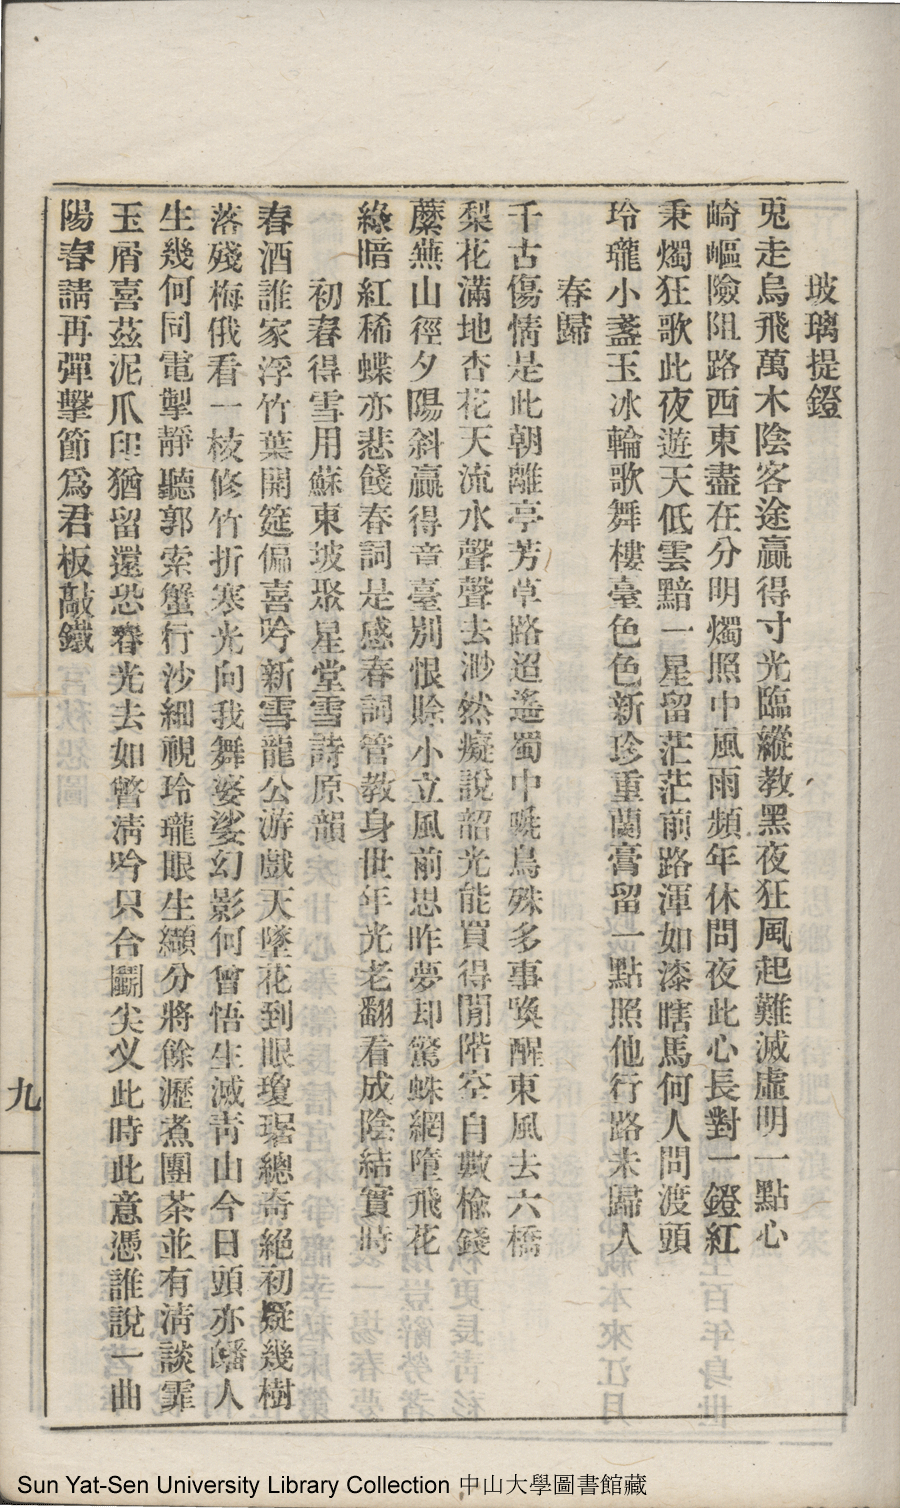 玻璃提鐙
兎走烏飛萬木陰客途贏得寸光臨縱教黑夜狂風起難滅虛明一點心
崎嶇險阻路西東盡在分明燭照中風雨頻年休問夜此心長對一鐙紅
秉燭狂歌此夜遊天低雲黯一星留茫茫前路渾如漆瞎馬何人問渡頭
玲瓏小盞玉冰輪歌舞樓臺色色新珍重蘭膏留一點照他行路未歸人
春歸
千古傷情是此朝離亭芳草路迢遙蜀中嗁鳥殊多事喚醒東風去六橋
梨花滿地杏花天流水聲聲去渺然癡說韶光能買得閒階空自數楡錢
蘼蕪山徑夕陽斜贏得音臺別恨賒小立風前思昨夢却驚蛛網墮飛花
綠暗紅稀蝶亦悲餞春詞是感春詞管教身世年光老翻看成陰結實時
初春得雪用蘇東坡聚星堂雪詩原韻
春酒誰家浮竹葉開筵偏喜吟新雪龍公游戲天墜花到眼瓊琚總奇絕初疑幾樹
落殘梅俄看一枝修竹折寒光向我舞婆娑幻影何曾悟生滅靑山今日頭亦皤人
生幾何同電掣靜聽郭索蟹行沙細視玲瓏眼生纈分將餘瀝煮團茶並有淸談霏
玉屑喜茲泥爪印猶留還恐春光去如瞥淸吟只合鬬尖叉此時此意憑誰說一曲
陽春請再彈擊節爲君板敲鐵
九
Sun Yat-Sen University Library Collection 中山大學圖書館藏